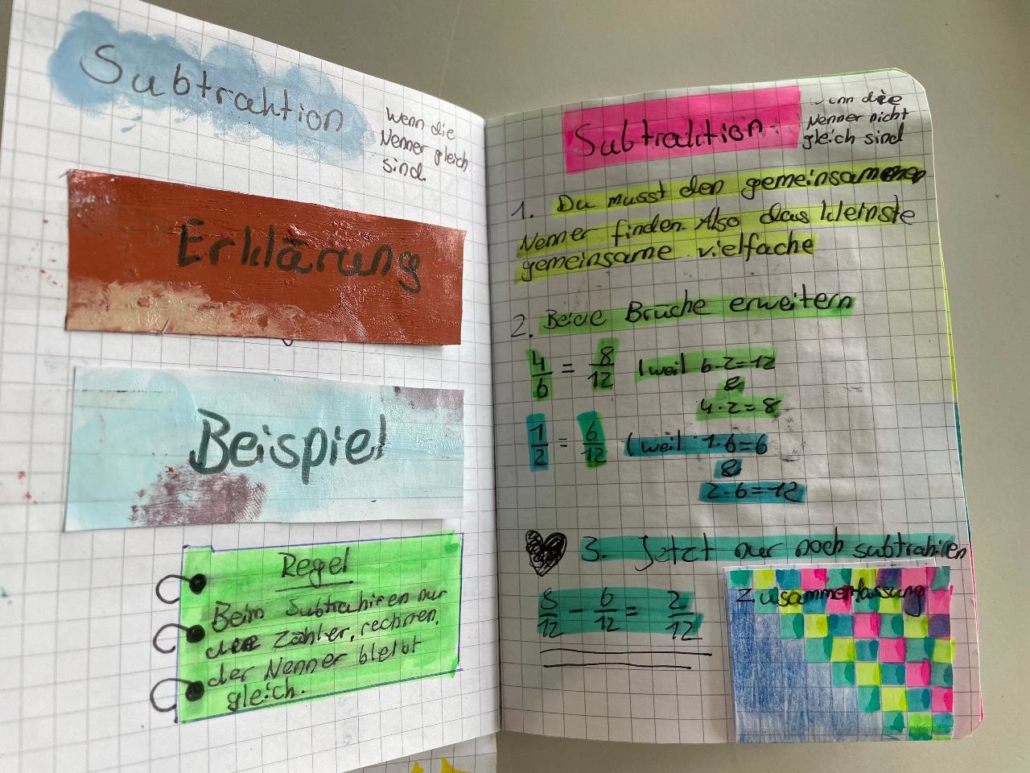 Subtraktion
Wenn die
Nenner gleich
sind.
Erklärung
Beispiel
Regel
Beim Subtrahiren nur
die Zähler, rechnen,
der Nenner bleibt
gleich.
Subtraktion
wenn die
Nenner nicht
gleich sind
1. Du musst den gemeinsamen
Nenner finden. Also das kleinste
gemeinsame vielfache
2. Beide Brüche erweitern
4/6 = 8/12 (weil 6·2=12
&
4·2=8
1/2 = 6/12 (weil 1·6=6
&
2·6=12
3. Jetzt nur noch subtrahiren
8/12 - 6/12 = 2/12
Zusammenfassung